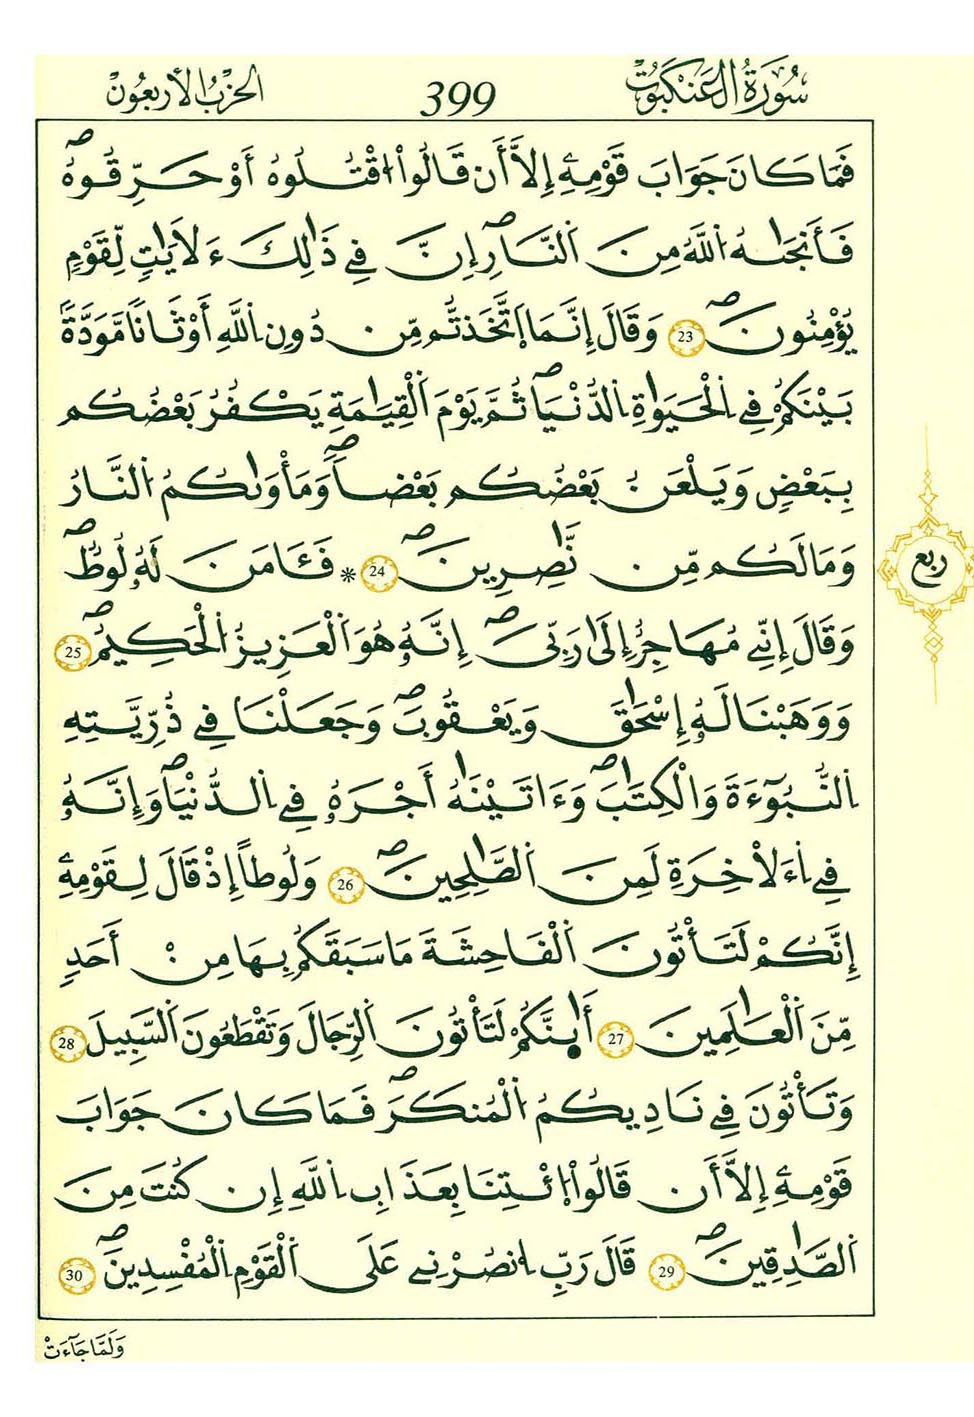 سُورَةُ الْعَنكَبُوتِ 399 الحِزْبُ الأَرْبَعُونَ
فَمَا كَانَ جَوَابَ قَوْمِهِۦٓ إِلَّآ أَن قَالُوا۟ اُ۟قْتُلُوهُ أَوْ حَرِّقُوهُۖ
فَأَنجَىٰهُ اُ۬للَّهُ مِنَ اَ۬لنّ۪ارِۖ إِنَّ فِے ذَٰلِكَ ءَلَايَٰتٖ لِّقَوْمٖ
يُؤْمِنُونَۖ 23 وَقَالَ إِنَّمَا اَ۪تَّخَذتُّم مِّن دُونِ اِ۬للَّهِ أَوْثَٰناٗ مَّوَدَّةَٗ
بَيْنَكُمْ فِے اِ۬لْحَيَوٰةِ اِ۬لدُّنْي۪اۖ ثُمَّ يَوْمَ اَ۬لْقِيَٰمَةِ يَكْفُرُ بَعْضُكُم
بِبَعْضٖ وَيَلْعَنُ بَعْضُكُم بَعْضاٗۖ وَمَأْو۪يٰكُمُ اُ۬لنَّارُ
وَمَا لَكُم مِّن نَّٰصِرِينَۖ 24 * فَـَٔامَنَ لَهُۥ لُوطٞۖ
وَقَالَ إِنِّے مُهَاجِرٌ إِلَىٰ رَبِّيَۖ إِنَّهُۥ هُوَ اَ۬لْعَزِيزُ اُ۬لْحَكِيمُۖ 25
وَوَهَبْنَا لَهُۥٓ إِسْحَٰقَ وَيَعْقُوبَۖ وَجَعَلْنَا فِے ذُرِّيَّتِهِ
اِ۬لنُّبُوٓءَةَ وَالْكِتَٰبَۖ وَءَاتَيْنَٰهُ أَجْرَهُۥ فِے اِ۬لدُّنْي۪اۖ وَإِنَّهُۥ
فِے اِ۬ءَلَاخِرَةِ لَمِنَ اَ۬لصَّٰلِحِينَۖ 26 وَلُوطاً إِذْ قَالَ لِقَوْمِهِۦٓ
إِنَّكُمْ لَتَأْتُونَ اَ۬لْفَاحِشَةَ مَا سَبَقَكُم بِهَا مِنْ أَحَدٖ
مِّنَ اَ۬لْعَٰلَمِينَ 27 أَئِنَّكُمْ لَتَأْتُونَ اَ۬لرِّجَالَ وَتَقْطَعُونَ اَ۬لسَّبِيلَ 28
وَتَأْتُونَ فِے نَادِيكُمُ اُ۬لْمُنكَرَۖ فَمَا كَانَ جَوَابَ
قَوْمِهِۦٓ إِلَّآ أَن قَالُوا۟ اُ۪ئْتِنَا بِعَذَابِ اِ۬للَّهِ إِن كُنتَ مِنَ
اَ۬لصَّٰدِقِينَۖ 29 قَالَ رَبِّ اِ۟نصُرْنِے عَلَى اَ۬لْقَوْمِ اِ۬لْمُفْسِدِينَۖ 30
ربع
وَلَمَّا جَآءَتْ